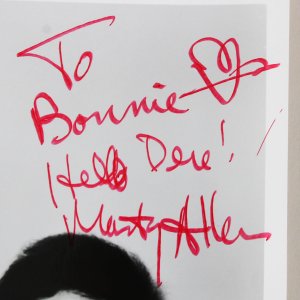 To
Bonnie
Hello Dere!
Marty Allen